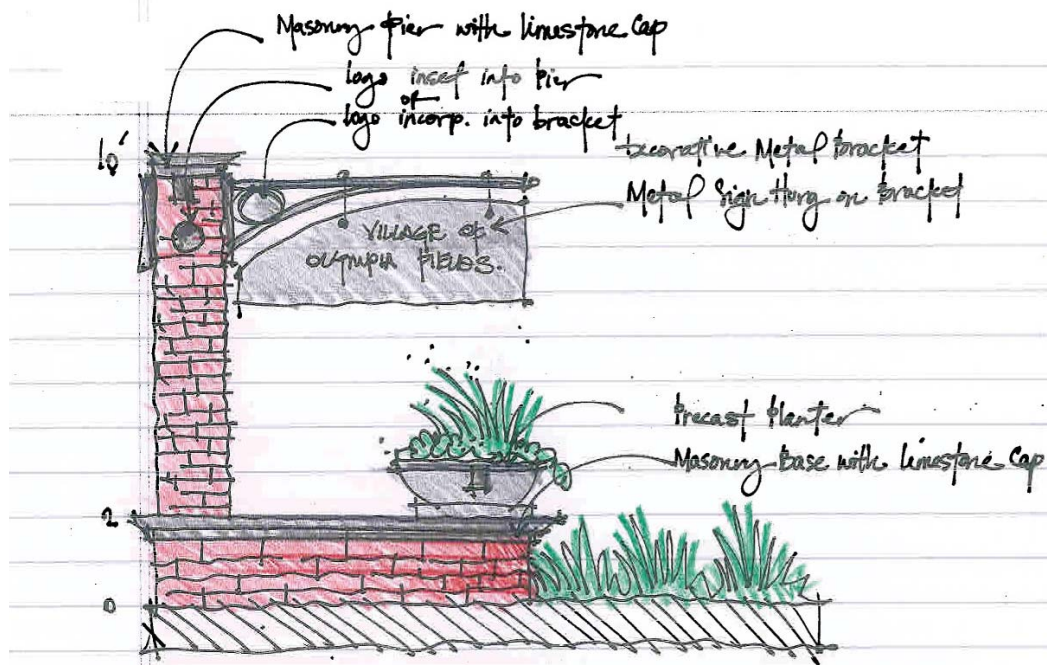 Masonry Pier with limestone Cap
logo inset into Pier
or
logo incorp. into bracket
Decorative Metal Bracket
Metal Sign Hung on Bracket
10'
VILLAGE of
OLYMPIA FIELDS.
Precast Planter
Masonry Base with limestone Cap
2
0